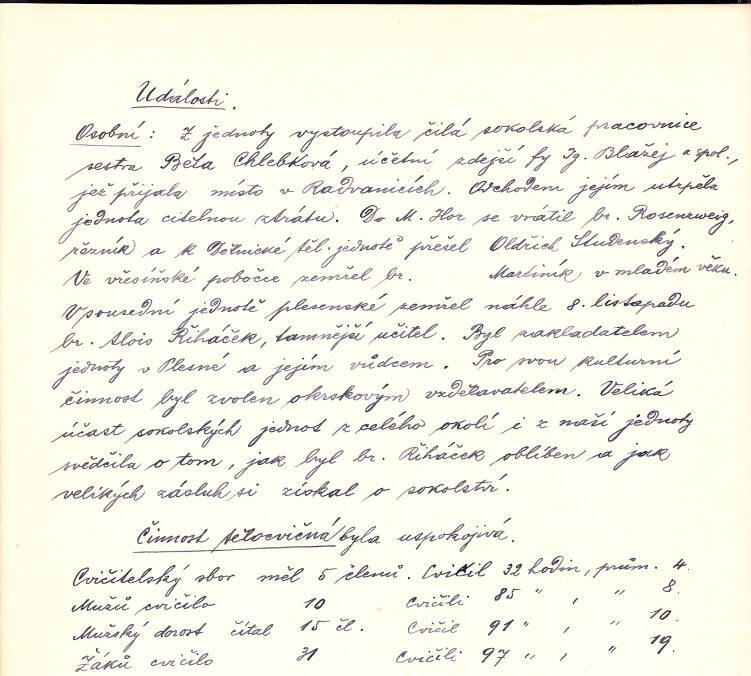 Události.
Osobní: Z jednoty vystoupila čilá sokolská pracovnice
sestra Běta Chlebková, účetní zdejší fy Ig. Blažej a spol.,
jež přijala místo v Radvanicích. Odchodem jejím utrpěla
jednota citelnou ztrátu. Do M. Hor se vrátil br. Rosenzweig,
řezník a k Dělnické těl. jednotě přešel Oldřich Studenský.
Ve vřesiňské pobočce zemřel br. Martiník v mladém věku.
V sousední jednotě plesenské zemřel náhle 8. listopadu
br. Alois Řiháček, tamnější učitel. Byl zakladatelem
jednoty v Plesné a jejím vůdcem. Pro svou kulturní
činnost byl zvolen okrskovým vzdělavatelem. Veliká
účast sokolských jednot z celého okolí i z naší jednoty
svědčila o tom, jak byl br. Řiháček oblíben a jak
velikých zásluh si získal o sokolství.
Činnost tělocvičná byla uspokojivá.
Cvičitelský sbor měl 5 členů. Cvičil 32 hodin, prům. 4.
Mužů cvičilo 10 Cvičili 85 " , " 8.
Mužský dorost čítal 15 čl. Cvičil 91 " , " 10.
Žáků cvičilo 31 Cvičili 97 " , " 19.